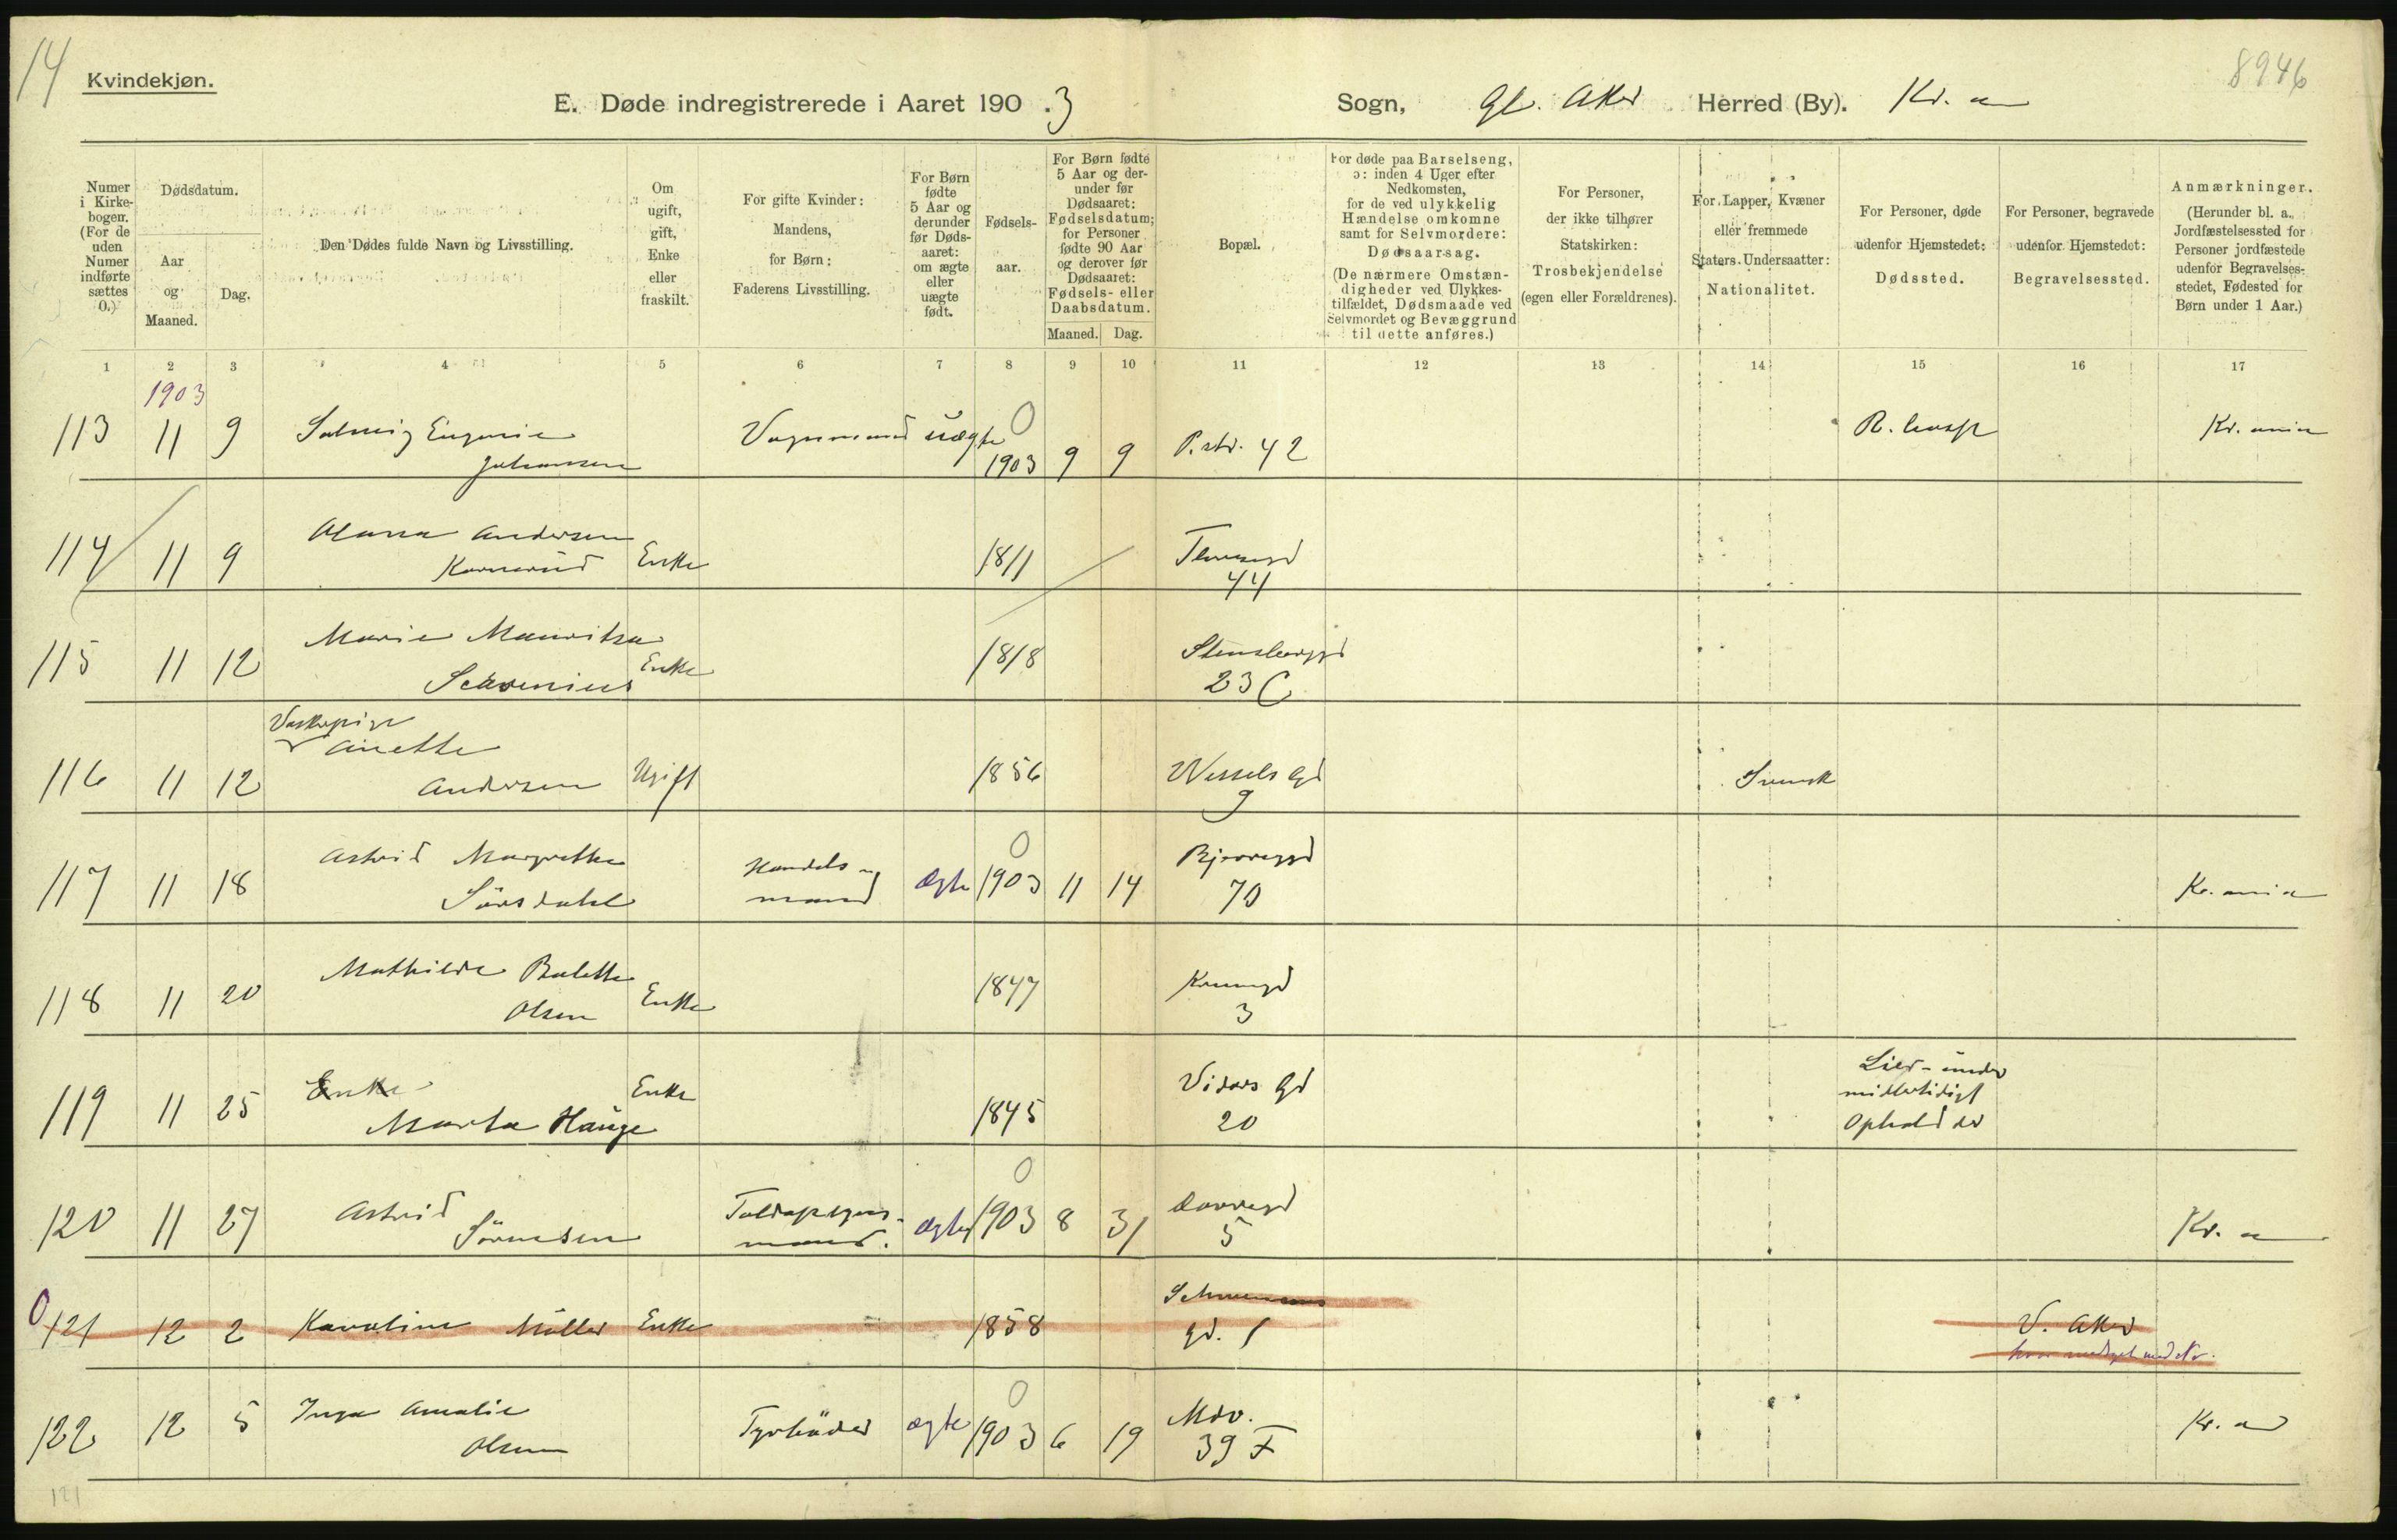 14
Kvindekjøn.
8946
E. Døde indregistrerede i Aaret 190.3
Sogn, Gl. Aker Herred (By). Kr. a
Numer i Kirkebogen. (For de uden Numer indførte sættes 0.)
Dødsdatum.
Aar og Maaned.
Dag.
Den Dødes fulde Navn og Livsstilling.
Om ugift, gift, Enke eller fraskilt.
For gifte Kvinder: Mandens, for Børn: Faderens Livsstilling.
For Børn fødte 5 Aar og derunder før Dødsaaret: om ægte eller uægte født.
Fødselsaar.
For Børn fødte 5 Aar og derunder før Dødsaaret: Fødselsdatum; for Personer fødte 90 Aar og derover før Dødsaaret: Fødsels- eller Daabsdatum.
Maaned. Dag.
Bopæl.
For døde paa Barselseng, ɔ: inden 4 Uger efter Nedkomsten, for de ved ulykkelig Hændelse omkomne samt for Selvmordere: Dødsaarsag. (De nærmere Omstændigheder ved Ulykkestilfældet, Dødsmaade ved Selvmordet og Bevæggrund til dette anføres.)
For Personer, der ikke tilhører Statskirken: Trosbekjendelse (egen eller Forældrenes).
For Lapper, Kvæner eller fremmede Staters Undersaatter: Nationalitet.
For Personer, døde udenfor Hjemstedet: Dødssted.
For Personer, begravede udenfor Hjemstedet: Begravelsessted.
Anmærkninger. (Herunder bl. a. Jordfæstelsessted for Personer jordfæstede udenfor Begravelsesstedet, Fødested for Børn under 1 Aar.)
1 2 3 4 5 6 7 8 9 10 11 12 13 14 15 16 17
1903
113 11 9 Solveig Eugenie Johansen Vognmand uægte 0 1903 9 9 P.str. 42 R. hosp Kr. ania
114 11 9 Olava Andersen Enke 1811 44
115 11 12 Marie Mauritza Scavenius Enke 1818 Stensberggd 23 C
116 11 12 Vaskepige Anette Andersen Ugift 1856 Wessels Gd 9 Svensk
117 11 18 Astrid Margrethe Sörsdahl Handelsmand Ægte 0 1903 11 14 Bjerregd 70 Kr. ania
118 11 20 Mathilde Bolette Olsen Enke 1847 3
119 11 25 Enke Marta Hauge Enke 1845 Vidars Gd 20 Lier - under midlertidigt Ophold der
120 11 27 Astrid Sörensen mand. ægte 0 1903 8 31 Dovregd 5 Kr. a
0 121 12 2 Karoline Müller Enke 1858 gd. 1 V. Aker
122 12 5 Inga Amalie Olsen Fyrbøder ægte 0 1903 6 19 Mdv. 39 F Kr. a
121